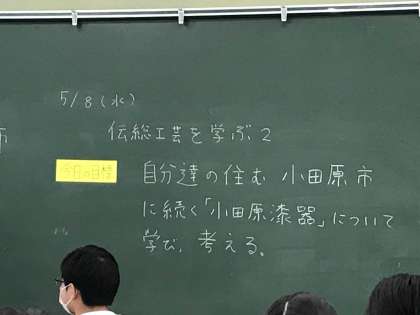 5/8(水)
伝総工芸を学ぶ2
今日の目標
自分達の住む 小田原市
に続く「小田原漆器」について
学び、考える。
市